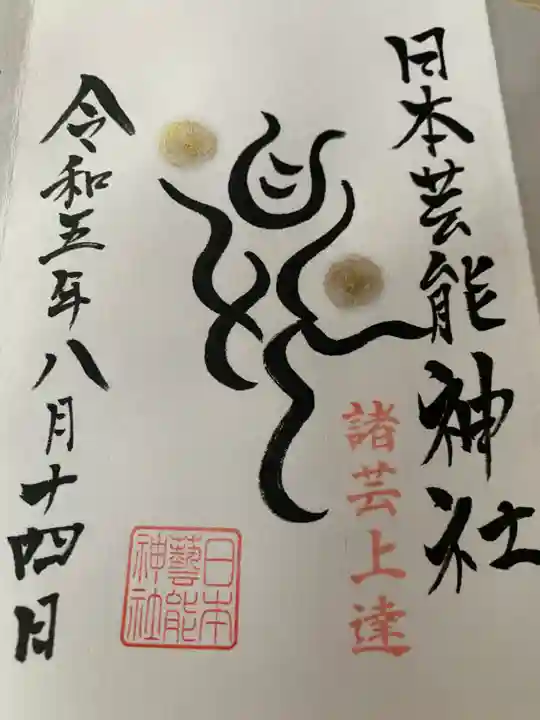 日本芸能神社
諸芸上達
日本
藝能
神社
令和五年八月十四日